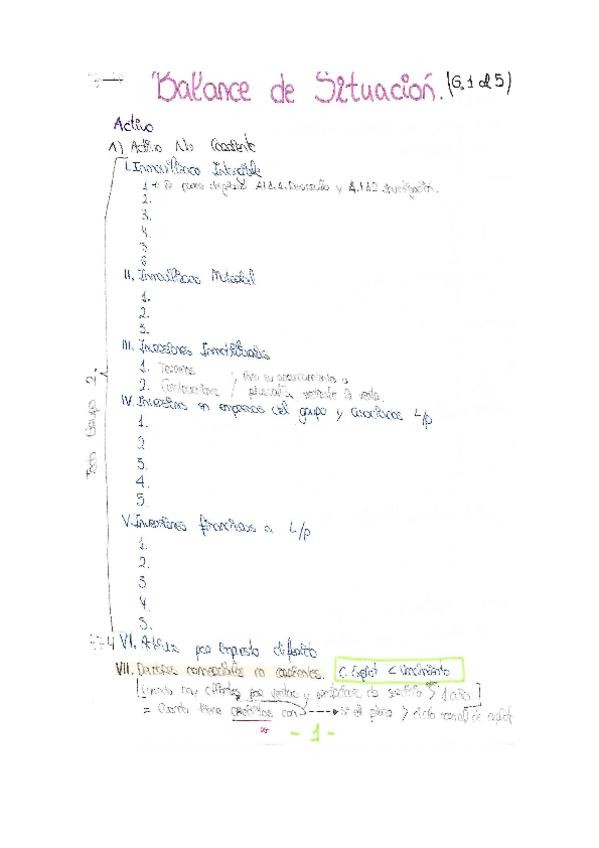 Balance de Situación. (G. 1 al 5)
Activo
A) Activo No Corriente
I. Inmovilizado Intangible
1. + Se puede A.1.1.1. Desarrollo y A.1.1.2 Investigación.
2.
3.
4
5
6
II. Inmovilizado Material
1.
2.
3.
III. Inversiones Inmobiliarias
1. Terrenos
2. Construcciones
para su arrendamiento o
plusvalía mediante la venta.
IV. Inversiones en empresas del grupo y asociadas L/p
1.
2
3.
4.
5
V. Inversiones financieras a L/p
1.
2.
3
4.
5.
Todo Grupo 2.
474 VI. Activos por Impuesto diferido
VII. Deudores comerciales no corrientes. C. Explot < Vencimiento
[Cuando hay clientes por ventas y prestaciones de servicio > 1 año]
= Cuando tiene créditos con si el plazo > ciclo normal de explot
- 1 -